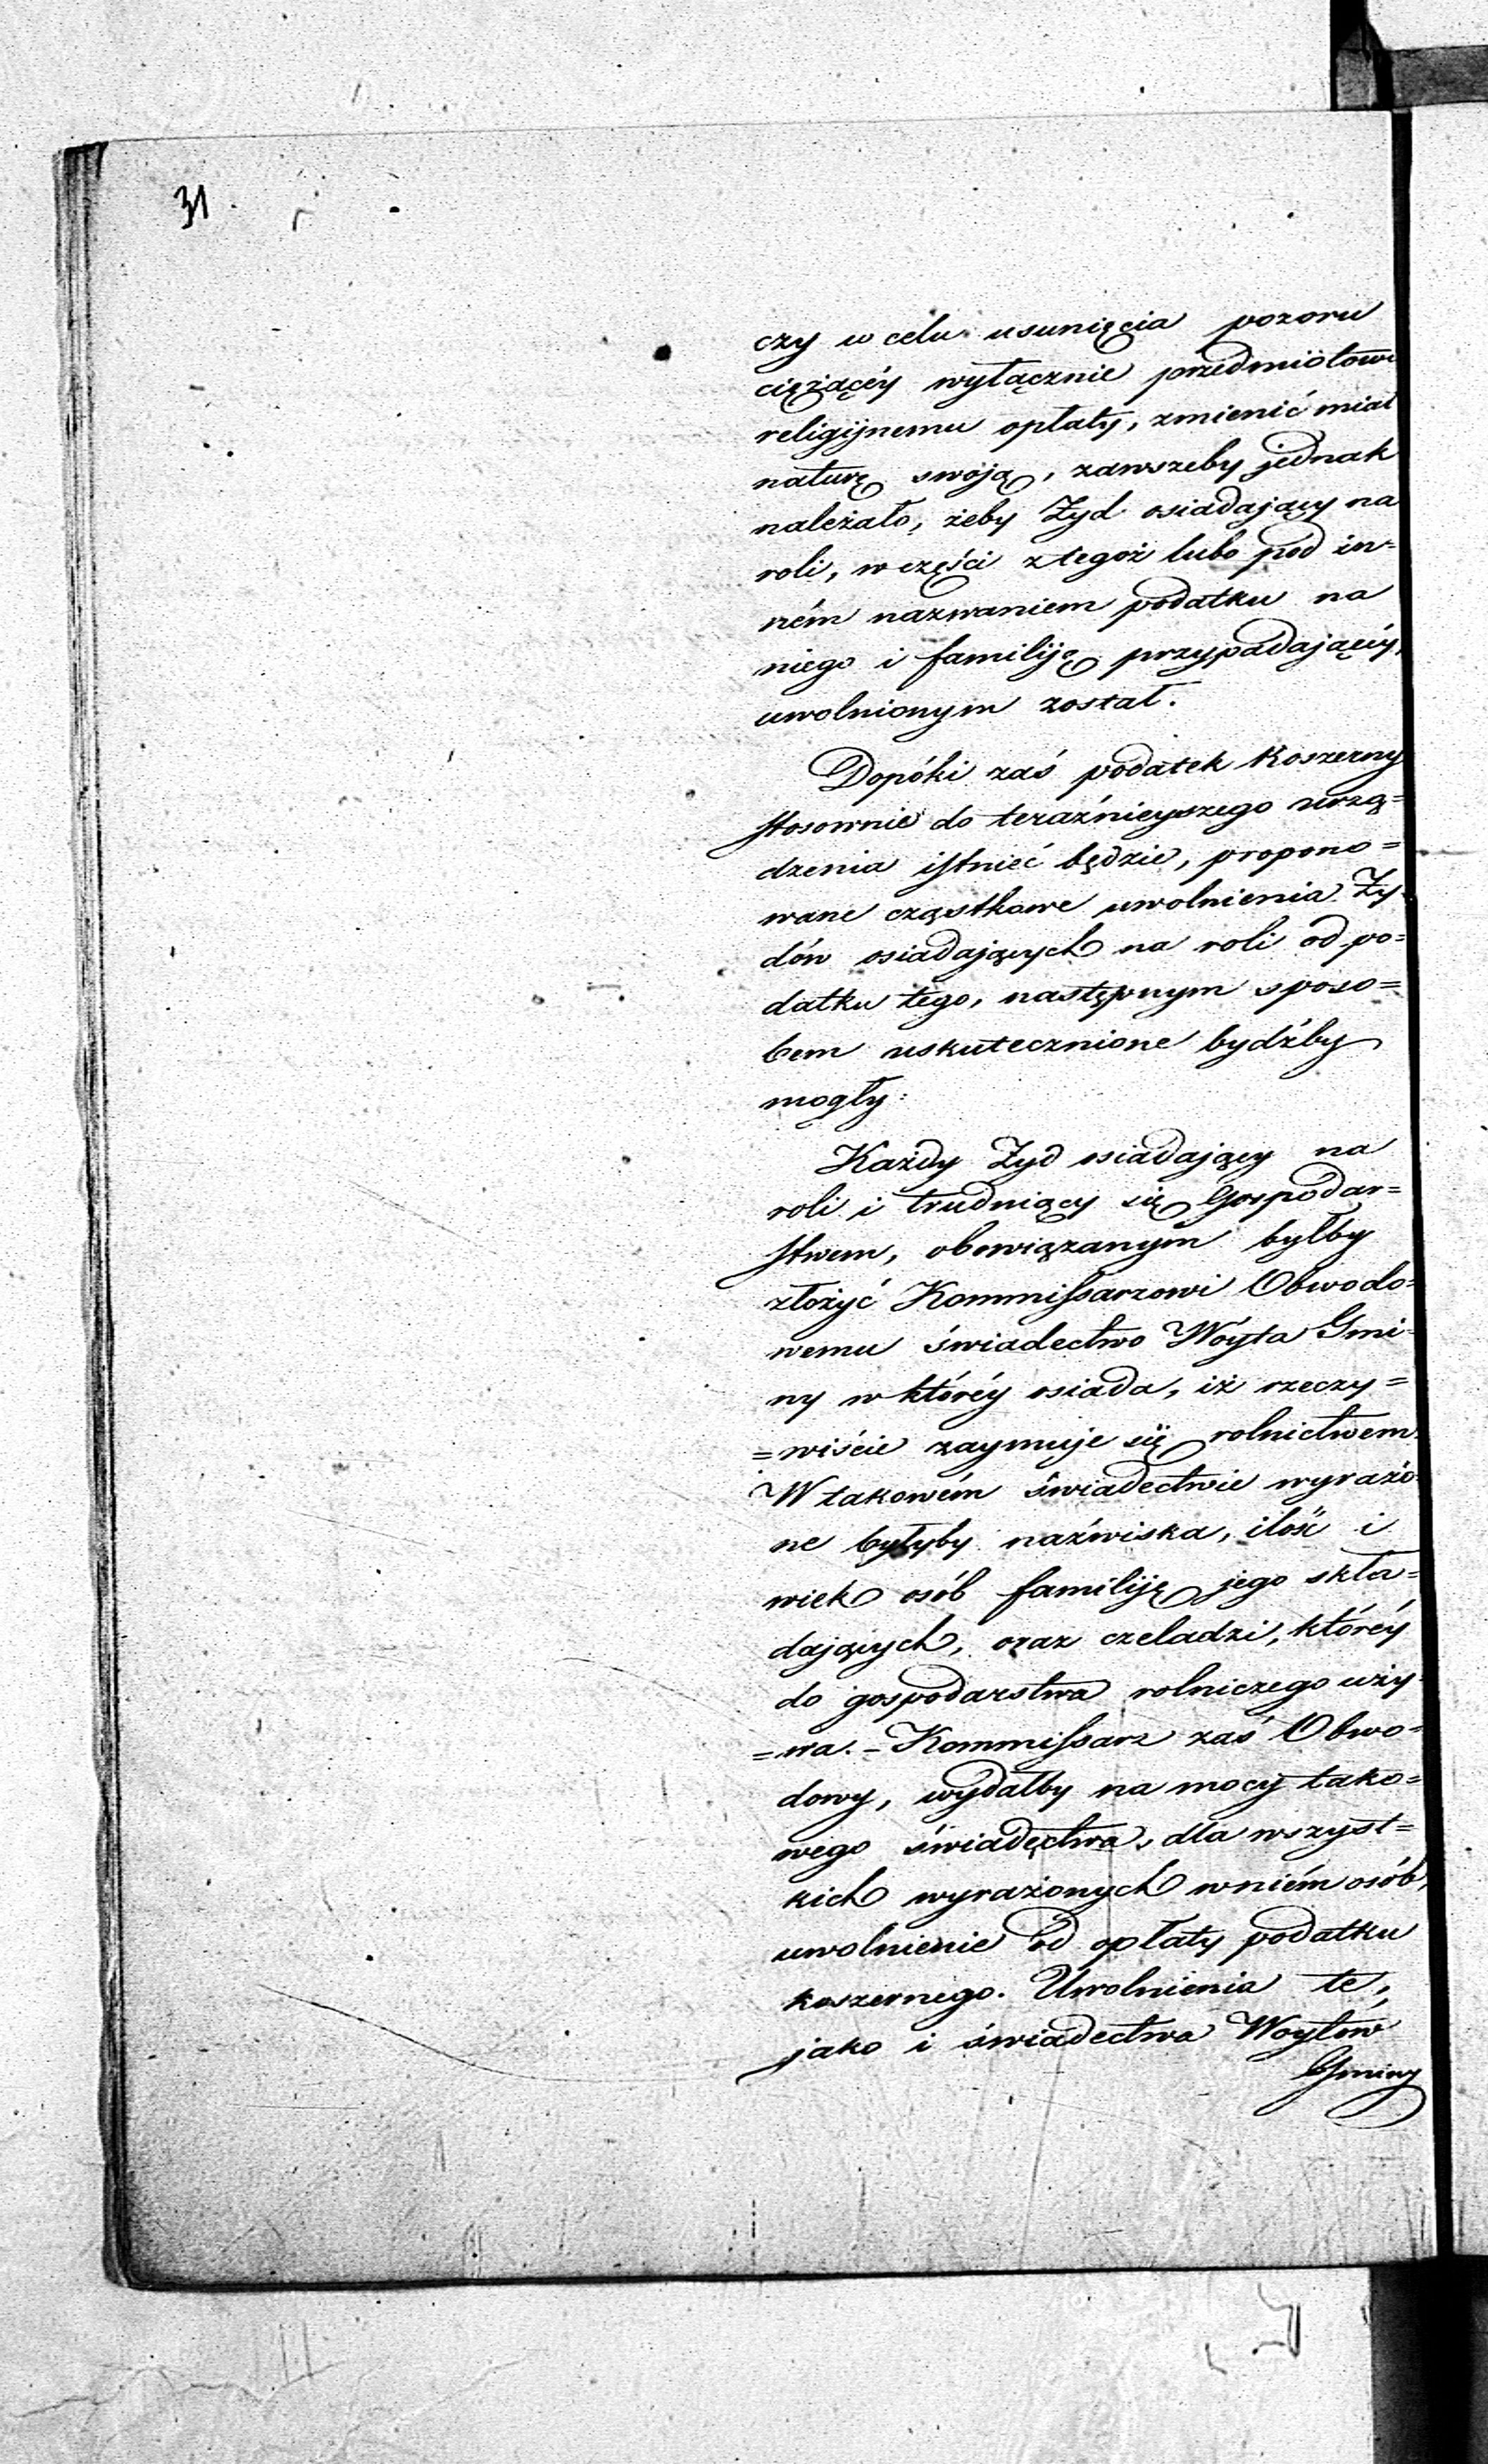 31
czy w celu usunięcia pozoru
ciężącéy wyłącznie przedmiotowi
religijnemu opłaty, zmienić miał
naturę swoją, zawszeby jednak
należało, żeby Żyd osiadający na
roli, w części z tegoż lubo pod in-
ném nazwaniem podatku na
niego i familiję przypadającéy,
uwolnionym został.
Dopóki zaś podatek Koszerny
stosownie do teraźnieyszego urzą=
dzenia istnieć będzie, propono=
wane cząstkowe uwolnienia Ży-
dów osiadających na roli od po=
datku tego, następnym sposo=
bem uskutecznione bydźby
mogły:
Każdy Żyd osiadający na
roli i trudniący się Gospodar=
stwem, obowiązanym byłby
złożyć Kommissarzowi Obwodo=
wemu świadectwo Wóyta Gmi-
ny w któréy osiada, iż rzeczy=
=wiście zaymuje się rolnictwem.
W takowém świadectwie wyrażo-
ne byłyby naźwiska, ilość i
wiek osób familiję jego skła=
dających, oraz czeladzi, któréy
do gospodarstwa rolniczego uży-
=wa. – Kommissarz zaś Obwo=
dowy, wydałby na mocy tako=
wego świadectwa, dla wszyst=
kich wyrażonych w niém osób,
uwolnienie od opłaty podatku
koszernego. Uwolnienia te,
jako i świadectwa Woytów
Gminy